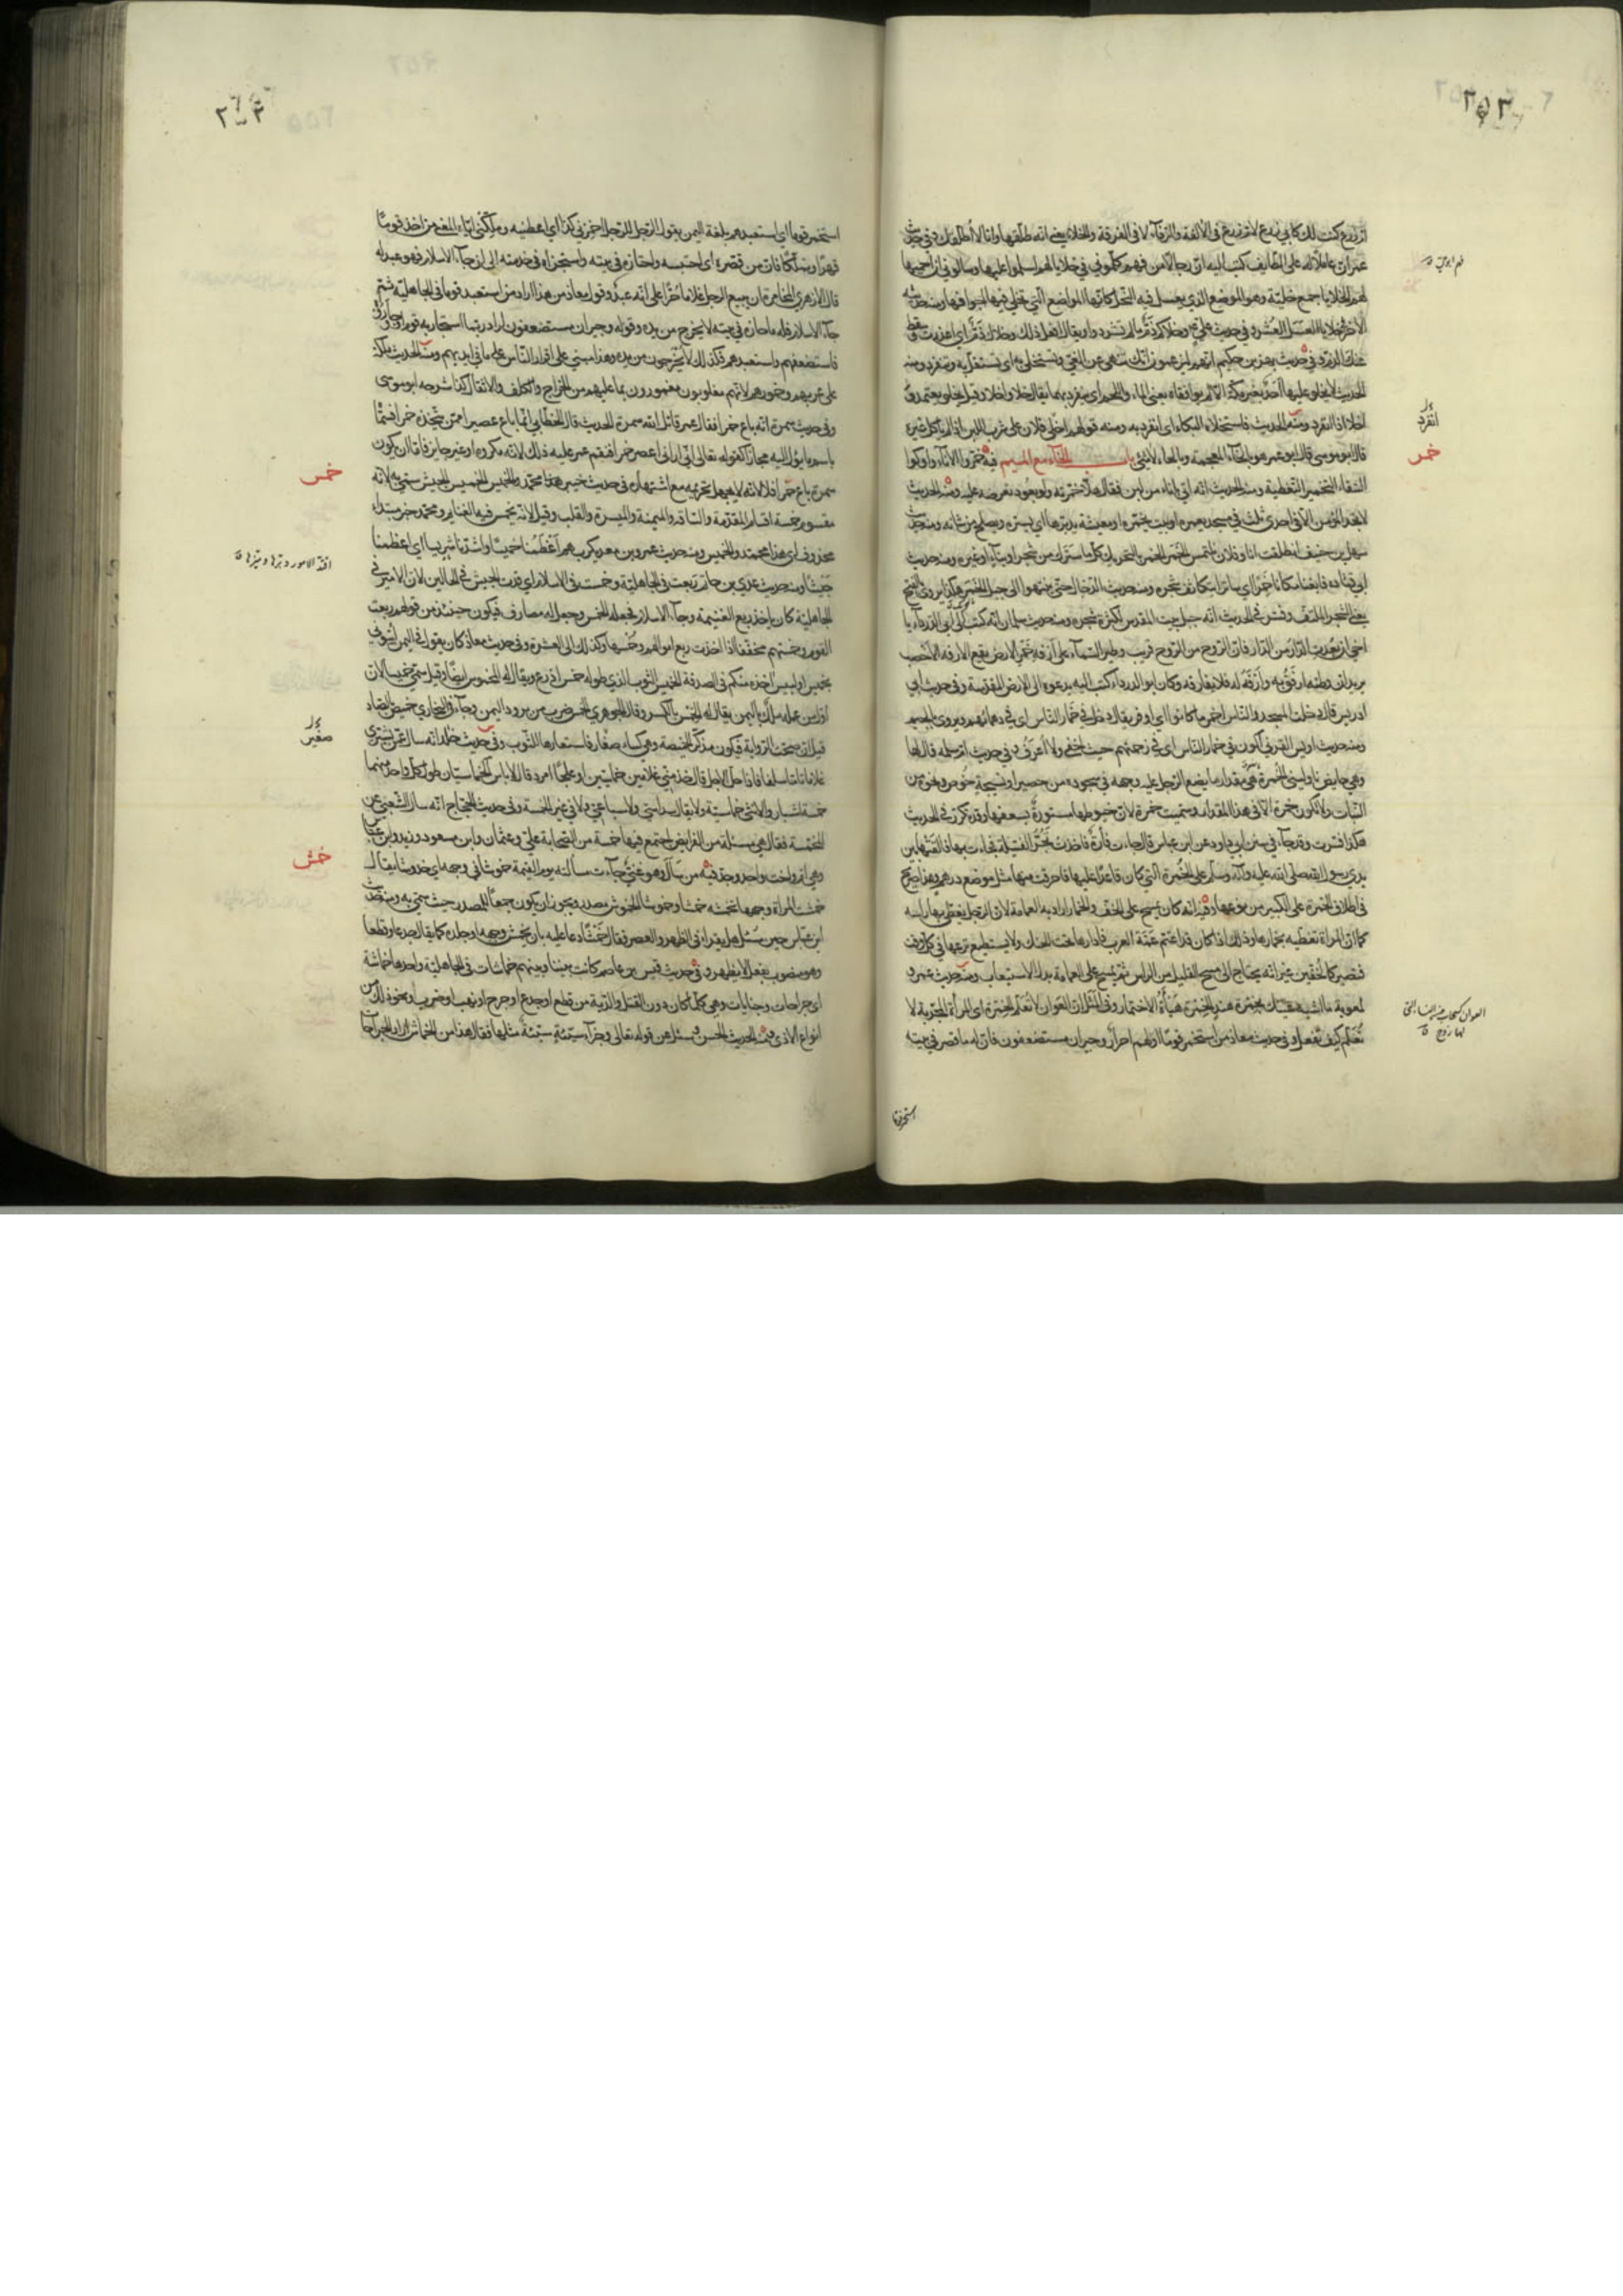 ٢٥٣
ام زرع كنت لك كابي زرع لام زرع في الالفة والرفآء لا في الفرقة والخلاء يعني انه طلقها وانا لا اطلقك وفي حديث
عمر ان عاملا له على الطايف كتب اليه ان رجالا من فهم كلموني في خلايا لهم اسلموا عليها وسالوني ان احميها
لهم الخلايا جمع خلية وهو الموضع الذي يعسل فيه النحل
الحديث لا يخلو عليها احد بغير مكة الا لم يوافقاه يعني الماء واللحم اي ينفرد بهما يقال خلا واخلا وقيل يخلو يعتمد
قال ابو موسى قال ابو عمر هو بالخآء المعجمة وبالحاء لا شئ باب الخآء مع الميم فيه خمروا الانآء واوكوا
السقاء التخمير التغطية ومنه الحديث انه اتي باناء من لبن فقال هلا خمرته ولو بعود تعرضه عليه ومنه الحديث
لا تجد المؤمن الا في احدى ثلث في مسجد يعمره او بيت يخمره او معيشة يدبرها اي يستره ويصلح من شانه ومنه حديث
سهل بن حنيف انطلقت انا وفلان نلتمس الخمر الخمر بالتحريك كل ما سترك من شجر او بناء او غيره ومنه حديث
ابي قتاده فابغنا مكانا خمرا اي ساترا بتكاثف شجره ومنه حديث الدجال حتى ينتهوا الى جبل الخمر هكذا يروى بالفتح
يعني الشجر الملتف وفسر في الحديث انه جبل بيت المقدس لكثرة شجره ومنه حديث سلمان انه كتب الى ابي الدرداء يا
اخي ان بعدت الدار من الدار فان الروح من الروح قريب وطير السمآء على ارفه خمر الارض يقع الارفه الاخصب
يريد ان وطنه ارفق به وارفه له فلا يفارقه وكان ابو الدرداء كتب اليه يدعوه الى الارض المقدسة وفي حديث ابي
ادريس قال دخلت المسجد والناس اخمر ما كانوا اي اوفر يقال دخل في خمار الناس اي في دهمائهم ويروى بالجيم
ومنه حديث اويس القرني اكون في خمار الناس اي في زحمتهم حيث اخفى ولا اعرف وفي حديث ام سلمه قال لها
وهي حايض ناوليني الخمرة هي مقدار ما يضع الرجل عليه وجهه في سجوده من حصير او نسيجة خوص ونحوه من
النبات ولا تكون خمرة الا في هذا المقدار وسميت خمرة لان خيوطها مستورة بسعفها وقد تكررت في الحديث
هكذا فسرت وقد جآء في سنن ابي داود عن ابن عباس قال جاءت فأرة فاخذت تجر الفتيلة فجاءت بها فالقتها بين
يدي رسول الله صلى الله عليه وآله وسلم على الخمرة التي كان قاعدا عليها فاحرقت منها مثل موضع درهم وهذا صريح
في اطلاق الخمرة على الكبير من نوعها وفيه انه كان يمسح على الخف والخمار اراد به العمامة لان الرجل يغطي بها راسه
كما ان المراة تغطيه بخمارها وذلك اذا كان قد اعتم عمة العرب فادارها تحت الحنك ولا يستطيع نزعها في كل وقت
فتصير كالخفين غير انه يحتاج الى مسح القليل من الراس ثم يمسح على العمامة بدل الاستيعاب ومنه حديث عمرو
لمعوية ما اشبه عينك بخمرة هند الخمرة هيأة الاختمار وفي المثل ان العوان لا تعلم الخمرة اي المرأة المجربة لا
تعلم كيف تفعل وفي حديث معاذ من استخمر قوما اولهم احرار وجيران مستضعفون فان له ما قصر في بيته
انفرد
خمر
استخمر قوما
استخمر قوما اي استعبدهم بلغة اليمن يقول الرجل للرجل اخمرني كذا اي اعطنيه وملكني اياه المعنى من اخذ قوما
قهرا وتملكا فان من قصره اي احتبسه واحتازه في بيته واستجراه في خدمته الى ان جآء الاسلام فهو عبد له
قال الازهري المخامرة ان يبيع الرجل غلاما حرا على انه عبده وقول معاذ من هذا اراد من استعبد قوما في الجاهلية ثم
جآء الاسلام فله ما حازه في بيته لا يخرج من يده وقوله وجيران مستضعفون اراد ربما استجار به قوم او جاوروه
فاستضعفهم واستعبدهم فكذلك لا يخرجون من يده وهذا مبني على اقرار الناس على ما في ايديهم ومنه الحديث ملكه
على عربهم وخمورهم لانهم مغلوبون مغمورون بما عليهم من الخراج والكلف والاثقال كذا شرحه ابو موسى
وفي حديث سمرة انه باع خمرا فقال عمر قاتل الله سمرة الحديث قال الخطابي انما باع عصيرا ممن يتخذه خمرا فسماه
باسم ما يؤل اليه مجازا كقوله تعالى اني اراني اعصر خمرا فنقم عمر عليه ذلك لانه مكروه او غير جايز فاما ان يكون
سمرة باع خمرا فلا لانه لا يجهل تحريمه مع اشتهاره في حديث خيبر محمد والخميس الخميس الجيش سمي به لانه
مقسوم خمسة اقسام المقدمة والساقه والميمنة والميسرة والقلب وقيل لانه تخمس فيه الغنايم ومحمد خبر مبتداء
محذوف اي هذا محمد والخميس ومنه حديث عمرو بن معديكرب هم اعظمنا خميسا واشدنا شريسا اي اعظمنا
جيشا ومنه حديث عدي بن حاتم ربعت في الجاهلية وخمست في الاسلام اي قدت الجيش في الحالين لان الامير في
الجاهلية كان ياخذ ربع الغنيمة وجآء الاسلام فجعله الخمس وجعل له مصارف فيكون حينئذ من قولهم ربعت
القوم وخمستهم مخففا اذا اخذت ربع اموالهم وخمسها وكذلك الى العشرة وفي حديث معاذ كان يقول في اليمن ائتوني
بخميس او لبيس اخذه منكم في الصدقة الخميس الثوب الذي طوله خمس اذرع ويقال له المخموس ايضا وقيل سمي خميسا لان
اول من عمله ملك باليمن يقال له الخمس بالكسر وقال الجوهري الخمس ضرب من برود اليمن وجآء في البخاري خميص بالصاد
قيل ان صحت الرواية فيكون مذكر الخميصة وهي كساء صغار فاستعارها للثوب وفي حديث خالد انه سال عمن يشتري
غلاما تاما سلفا فاذا حل الاجل قال خذ مني غلامين خماسيين او علجا امرد قال لا باس الخماسيان طول كل واحد منهما
خمسة اشبار والانثى خماسية ولا يقال سداسي ولا سباعي ولا في غير الخمسة وفي حديث الحجاج انه سال الشعبي عن
المخمسة فقال هي مسئلة من الفرايض اجتمع فيها خمسة من الصحابة علي وعثمان وابن مسعود وزيد وابن عباس
وهي ام واخت وجد فيه من سأل وهو غني جآءت مسألته يوم القيمة خموشا في وجهه اي خدوشا يقال
خمشت المراة وجهها تخمشه خمشا وخموشا الخموش مصدر ويجوز ان يكون جمعا للمصدر حيث سمي به ومنه حديث
ابن عباس حين سئل هل يقرا في الظهر والعصر فقال خمشا دعا عليه بان يخمش وجهه او جلده كما يقال جدعا وقطعا
وهو منصوب بفعل لا يظهر وفي حديث قيس بن عاصم كانت بيننا وبينهم خماشات في الجاهلية واحدها خماشة
اي جراحات وجنايات وهي كل ما كان دون القتل والدية من قطع او جدع او جرح او نهب او ضرب او نحو ذلك من
انواع الاذى ومنه حديث الحسن وسئل عن قوله تعالى وجزآء سيئة سيئة مثلها فقال هذا من الخماش اراد الجراحات
خمس
صغير
خمش